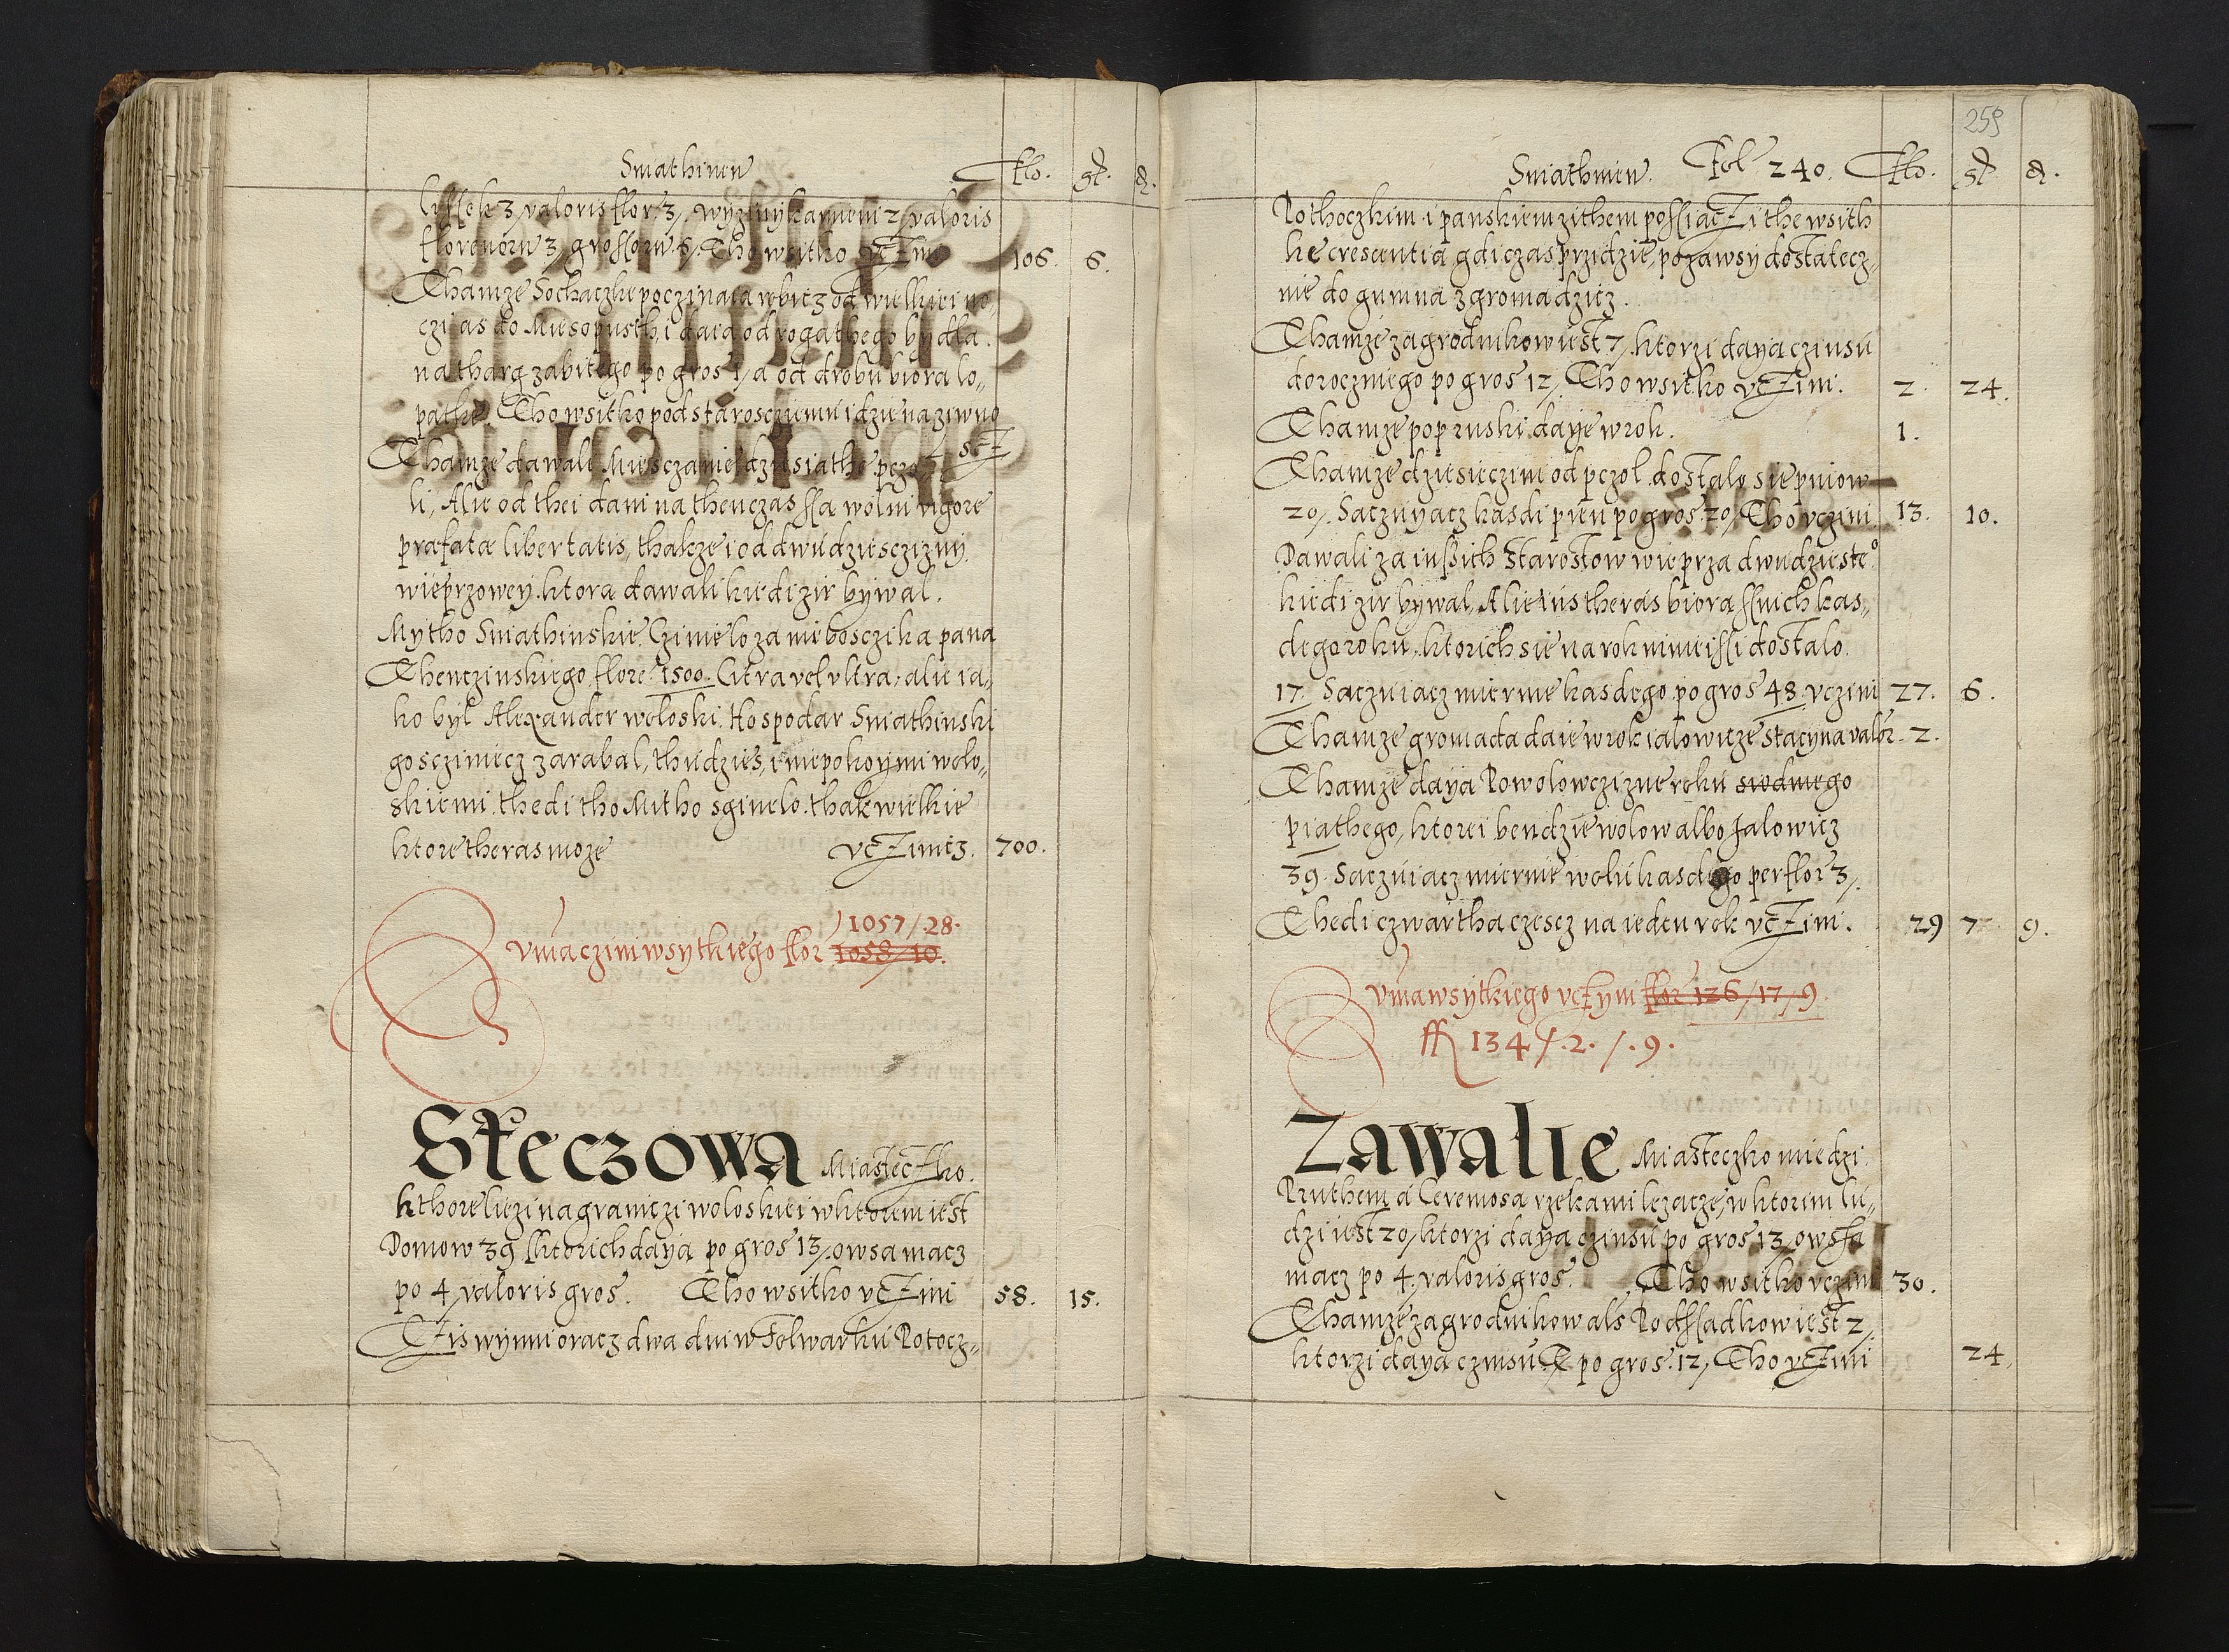 Sniathinen Flo. gr. d.
lissek 3, valoris flor. 3, wyziny kamieni 2, valoris
florenorum 3, grossorum 6. Tho wsitko vczini 106. 6.
Thamze Sochaczke poczinaia wbicz od wielkiei no-
czi as do Miesopusth, i daia od rogathego bydła
na tharg zabitego po gros 1, a od drobu biora lo-
pathe. Tho wsitko pod starosciemu idzie na ziwno
scz
Thamze dawali Miesczanie dziesiathe pczo-
li, Alie od thei dani na thenczas ssa wolni vigore
præfatæ libertatis, thakze i od dwudziesczizny
wieprzowey, ktora dawali kiedi zir bywal.
Mytho Sniathinskie. Czinielo za nieboszczika pana
Thenczinskiego flore. 1500. Citra vel vltra, alie ia-
ko byl Alexander woloski Hospodar Sniathinski
goscziniecz zarabal, thudzies, i niepokoymi wolo-
skiemi. thedi tho Mitho sginelo. thak wielkie
ktore theras moze vczinicz. 700.
1057/.28.
Sum̄a czini wsytkiego flor 1058/10.
Steczowa Miasteczko.
kthore liezi na graniczi woloskiei w ktorem iest
Domow 39 sktorich daya po gros 13, owsa macz
po 4, valoris gros. Tho wsitko vczini 58. 15.
Czis wynni oracz dwa dni w Folwarku Potocz-
259
Sniathnien. Fol 240. Flo. gr. d.
Pothoczkim i panskiem zithem possiacz, i the wsith
ke crescentia gdi czas przidzie, pozawsy dostatecz-
nie do gumna zgromadzicz.
Thamze zagrodnikow iest 7, ktorzi daya czinsu
doroczniego po gros 12, Tho wsitko vczini. 2. 24.
Thamze pop ruski daye wrok. 1.
Thamze dziesieczini od pczol dostalo sie pniow
20, Saczuyacz kasdi pien po gros. 20, Tho vczini 13. 10.
Dawali za inssich Starostow wieprza dwudzieste°
kiedi zir bywal, Alie ius theras biora s nich kas-
dego roku, ktorich sie na rok ninieissi dostalo.
17. Saczuiacz miernie kasdego po gros 48 vczini 27. 6.
Thamze gromada daie wrok ialowicze stacyina valor. 2.
Thamze daya Powolowczizne roku siodmego
piathego, ktorei bendzie wolow albo Jalowicz
39. Saczuiacz miernie wolu kasdego per flor 3,
Thedi czwartha czescz na ieden rok vczini. 29 7 9.
Sum̄a wsytkiego vczyni flor 126/17/9
ff 134/.2./.9.
Zawalie Miasteczko miedzi
Pruthem a Ceremosa rzekami lezacze, w ktorim lu-
dzi iest 20, ktorzi daya czinsu po gros 13, owssa
macz po 4, valoris gros. Tho wsitko vczini 30.
Thamze zagrodnikow als Podssadkow iest 2,
ktorzi daya czinsu po gros. 12, Tho vczini 24.